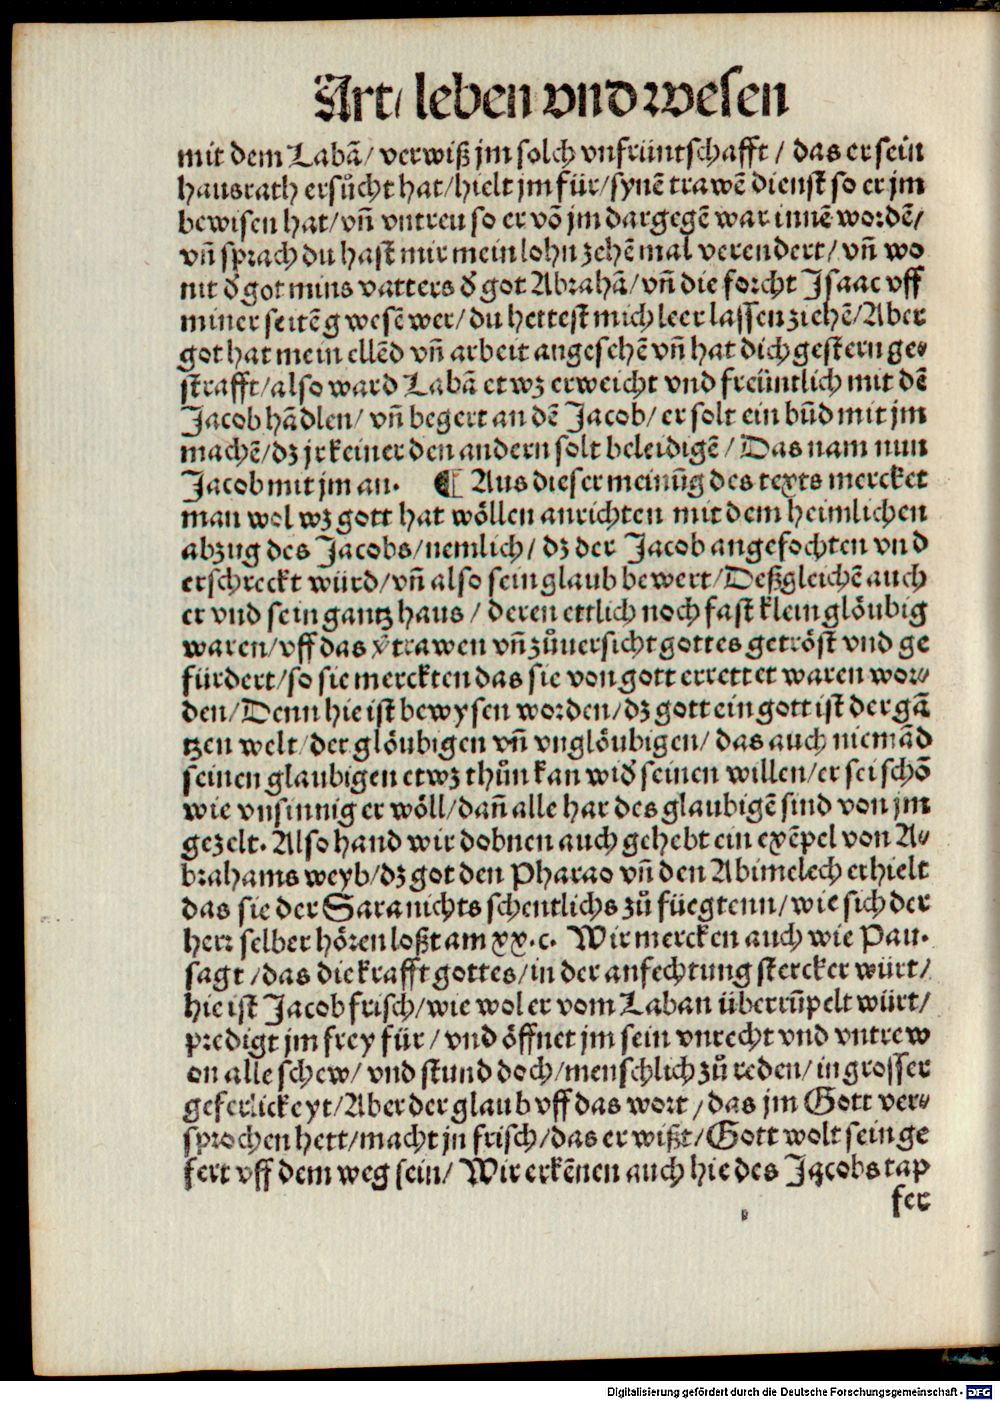 Art/ leben vnd wesen
mit dem Labā/ verwiß jm solch vnfrüntschafft/ das er sein
hausrath ersůcht hat/ hielt jm für/ synē trawē dienst so er jm
bewisen hat/ vñ vntreu so er vō jm dargegē war innē wordē/
vñ sprach du hast mir mein lohn zehē mal verendert/ vñ wo
nit d̄ got mins vatters d̄ got Abrahā/ vñ die forcht Isaac vff
miner seitē gwesē wer/ du hettest mich leer lassen ziehē/ Aber
got hat mein ellēd vñ arbeit angesehē vñ hat dich gestern ge⸗
strafft/ also ward Labā etwz erweicht vnd freüntlich mit dē
Jacob hādlen/ vñ begert an dē Jacob/ er solt ein būd mit jm
machē/ dz jr keiner den andern solt beleidigē/ Das nam nun
Jacob mit jm an. ¶ Aus dieser meinūg des texts mercket
man wol wz gott hat wöllen anrichten mit dem heimlichen
abzug des Jacobs/ nemlich/ dz der Jacob angefochten vnd
erschreckt würd/ vñ also sein glaub bewert/ Deßgleichē auch
er vnd sein gantz haus/ deren ettlich noch fast kleinglöubig
waren/ vff das v̄trawen vñ zůuersicht gottes getröst vnd ge
fürdert/ so sie merckten das sie von gott errettet waren wor⸗
den/ Denn hie ist bewysen worden/ dz gott ein gott ist der gā
tzen welt/ der glöubigen vñ vnglöubigen/ das auch niemād
seinen glaubigen etwz thůn kan wid̄ seinen willen/ er sei schō
wie vnsinnig er wöll/ dañ alle har des glaubigē sind von jm
gezelt. Also hand wir dobnen auch gehebt ein exēpel von A⸗
brahams weyb/ dz got den Pharao vñ den Abimelech erhielt
das sie der Sara nichts schentlichs zů füegtenn/ wie sich der
herr selber hören loßt am xx.c. Wir mercken auch wie Pau.
sagt/ das die krafft gottes/ in der anfechtung stercker würt/
hie ist Jacob frisch/ wie wol er vom Laban überrūpelt würt/
predigt jm frey für/ vnd öffnet jm sein vnrecht vnd vntrew
on alle schew/ vnd stund doch/ menschlich zů reden/ in grosser
geferlickeyt/ Aber der glaub vff das wort/ das jm Gott ver⸗
sprochen hett/ macht jn frisch/ das er wißt/ Gott wolt sein ge
fert vff dem weg sein/ Wir erkēnen auch hie des Jacobs tap
fer
Digitalisierung gefördert durch die Deutsche Forschungsgemeinschaft - DFG